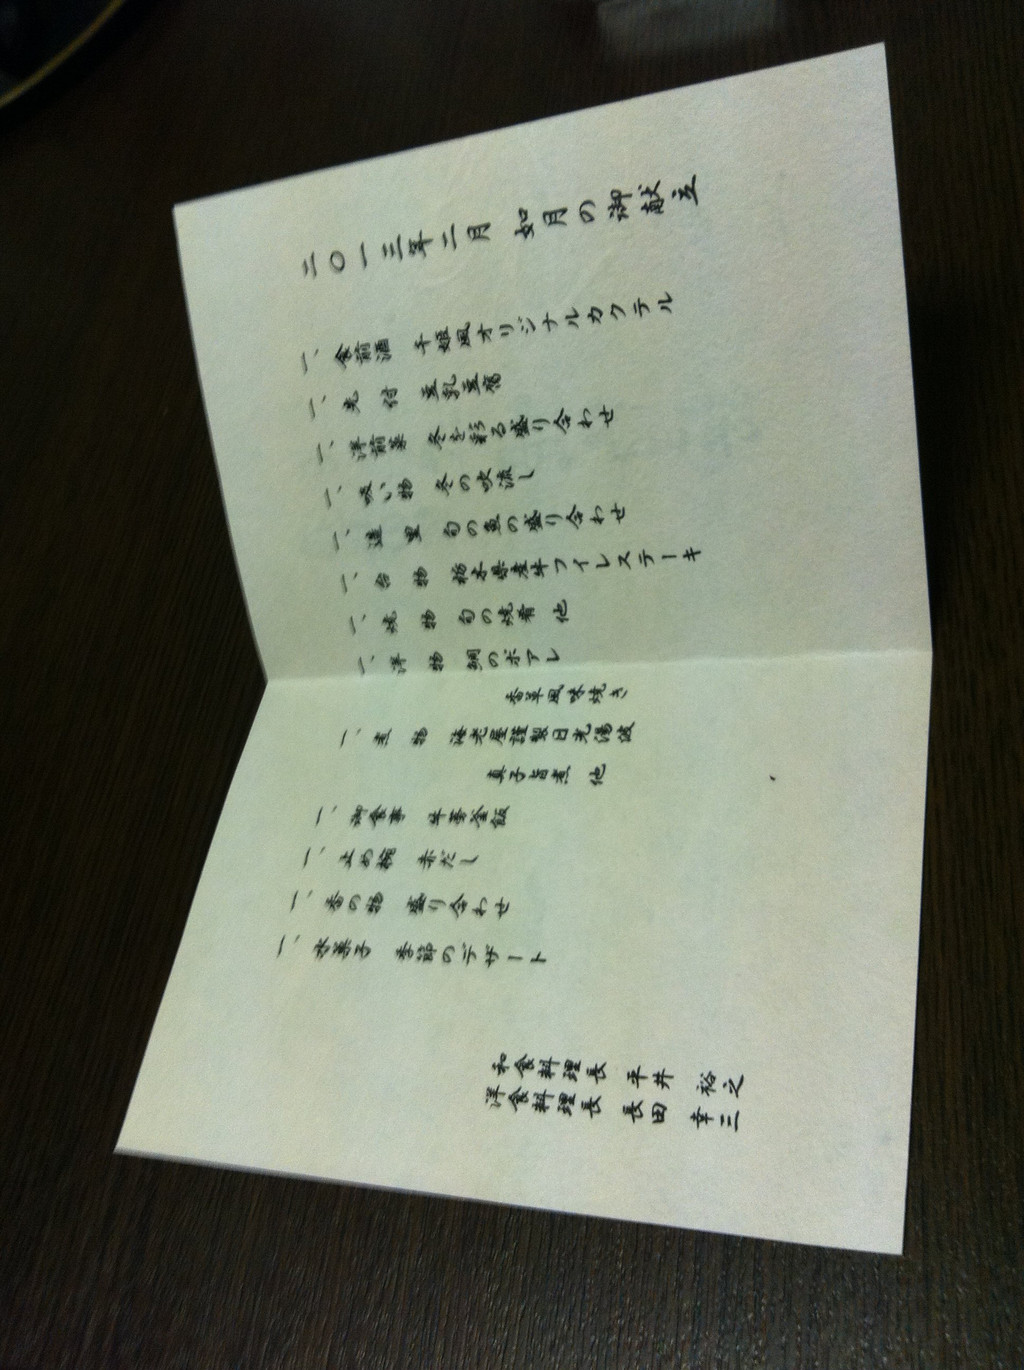 二〇一三年二月 如月の御献立
一、食前酒 千姫風オリジナルカクテル
一、先付 豆乳豆腐
一、洋前菜 冬を彩る盛り合わせ
一、吸い物 冬の吹流し
一、造里 旬の魚の盛り合わせ
一、台物 栃木県産牛フィレステーキ
一、焼物 旬の焼肴 他
一、洋物 鯛のポアレ
香草風味焼き
一、煮物 海老屋謹製日光湯波
真子旨煮 他
一、御食事 牛蒡釜飯
一、止め椀 赤だし
一、香の物 盛り合わせ
一、水菓子 季節のデザート
和食料理長 平井 裕之
洋食料理長 長田 幸三